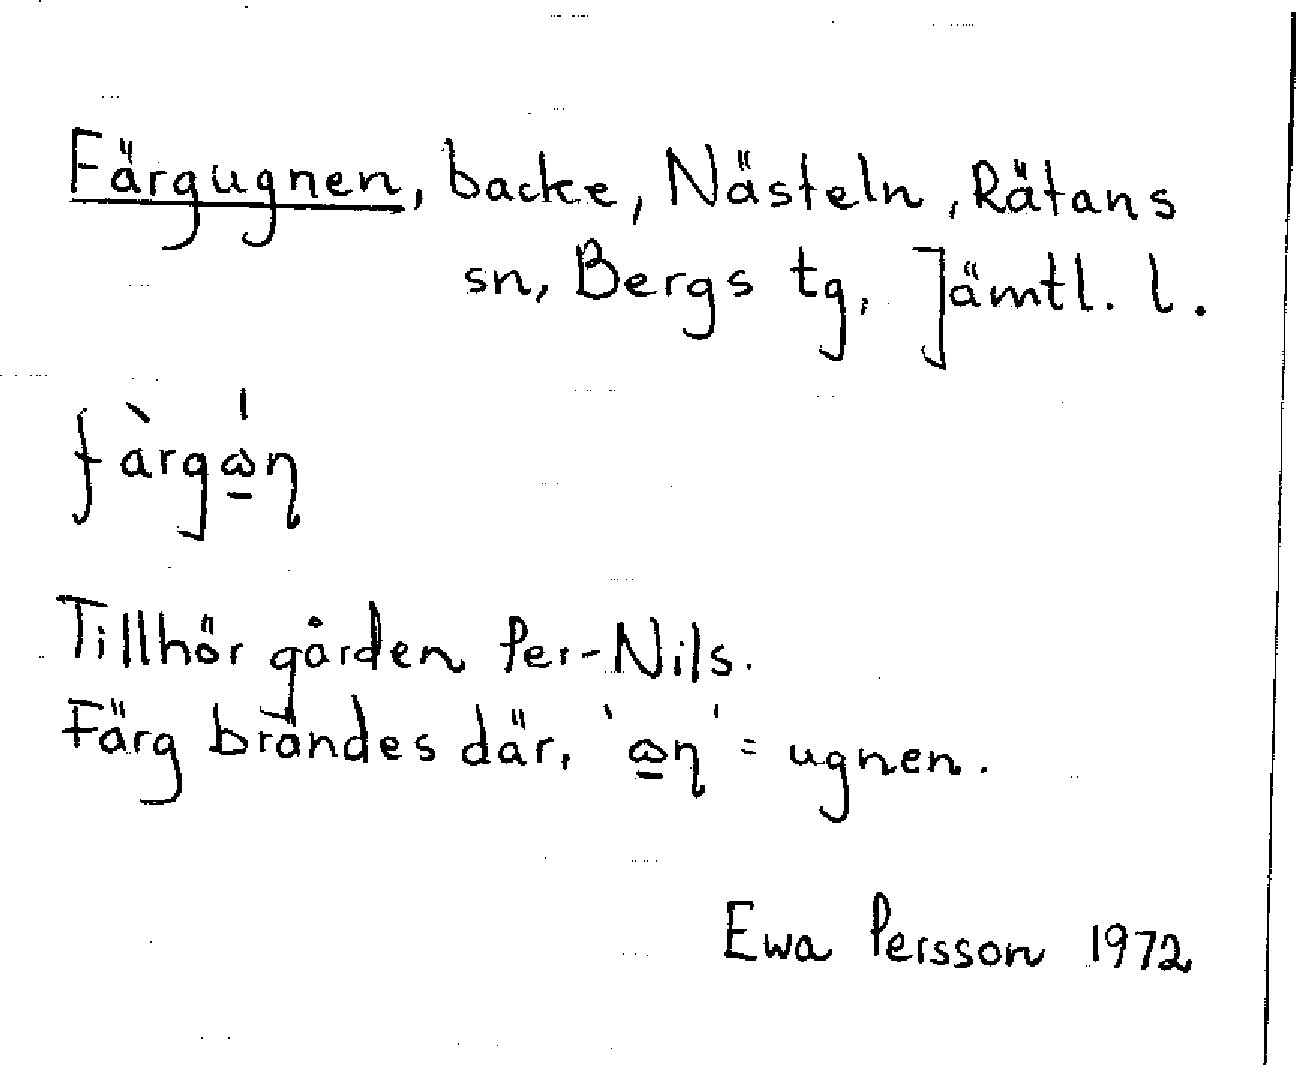 Färgugnen, backe, Nästeln, Rätans
sn, Bergs tg, Jämtl. l.
fàrgώ̲η
Tillhör gården Per-Nils.
Färg brändes där, 'ω̲η' = ugnen.
Ewa Persson 1972